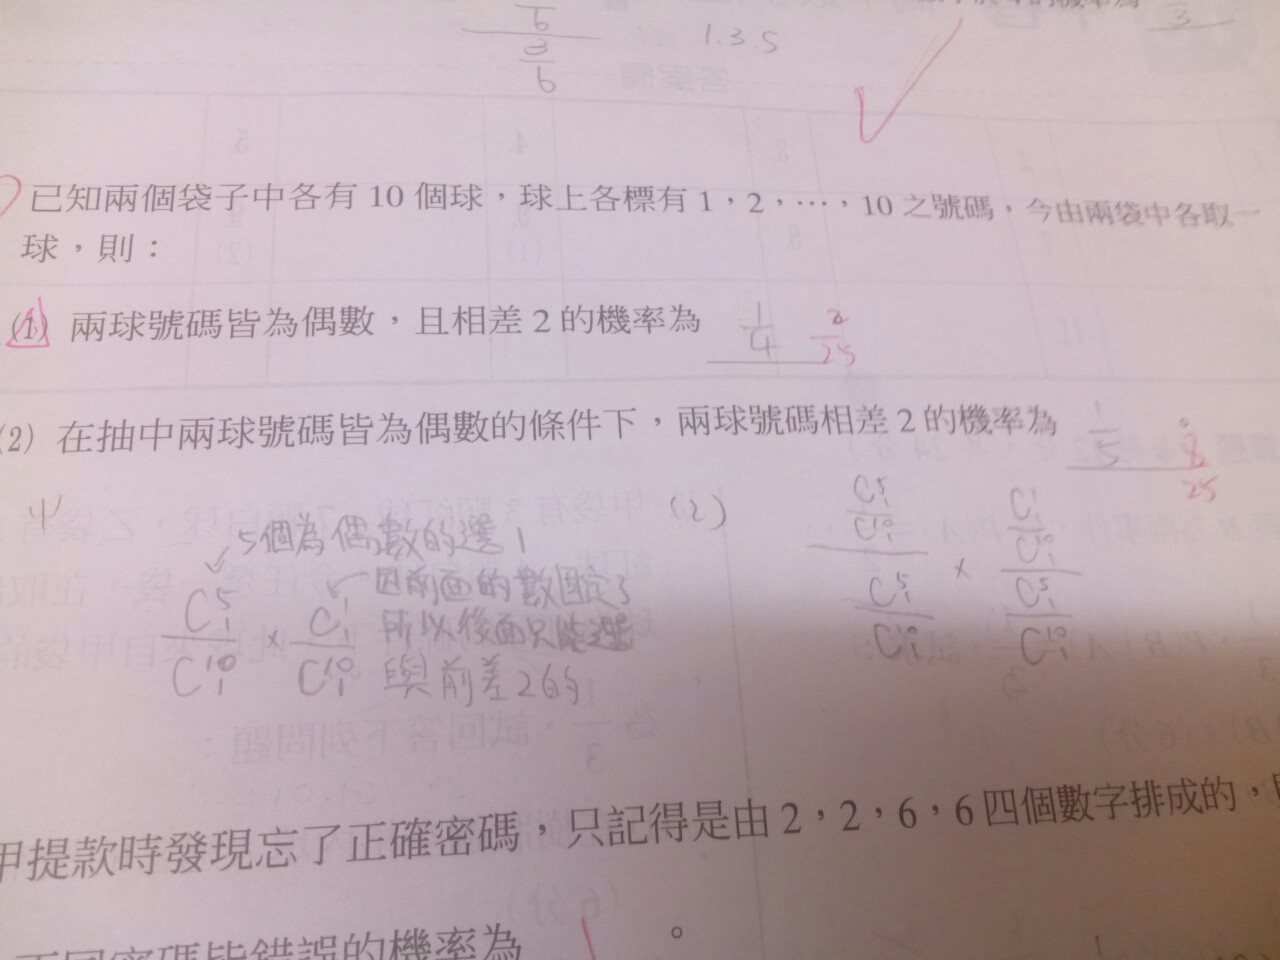 6
3
6
1.3.5
3
已知兩個袋子中各有 10 個球，球上各標有 1，2，…，10 之號碼，今由兩袋中各取一
球，則：
(1) 兩球號碼皆為偶數，且相差 2 的機率為 1/4 2/25
(2) 在抽中兩球號碼皆為偶數的條件下，兩球號碼相差 2 的機率為 1/5 8/25
5個為偶數的選1
因前面的數固定了
所以後面只能選
與前差2的
C⁵₁/C¹⁰₁ × C¹₁/C¹⁰₁
(2) (C⁵₁/C¹⁰₁)/(C⁵₁/C¹⁰₁) × (C¹₁/C¹⁰₁)/(C⁵₁/C¹⁰₁)
甲提款時發現忘了正確密碼，只記得是由 2，2，6，6 四個數字排成的，
密碼皆錯誤的機率為 。